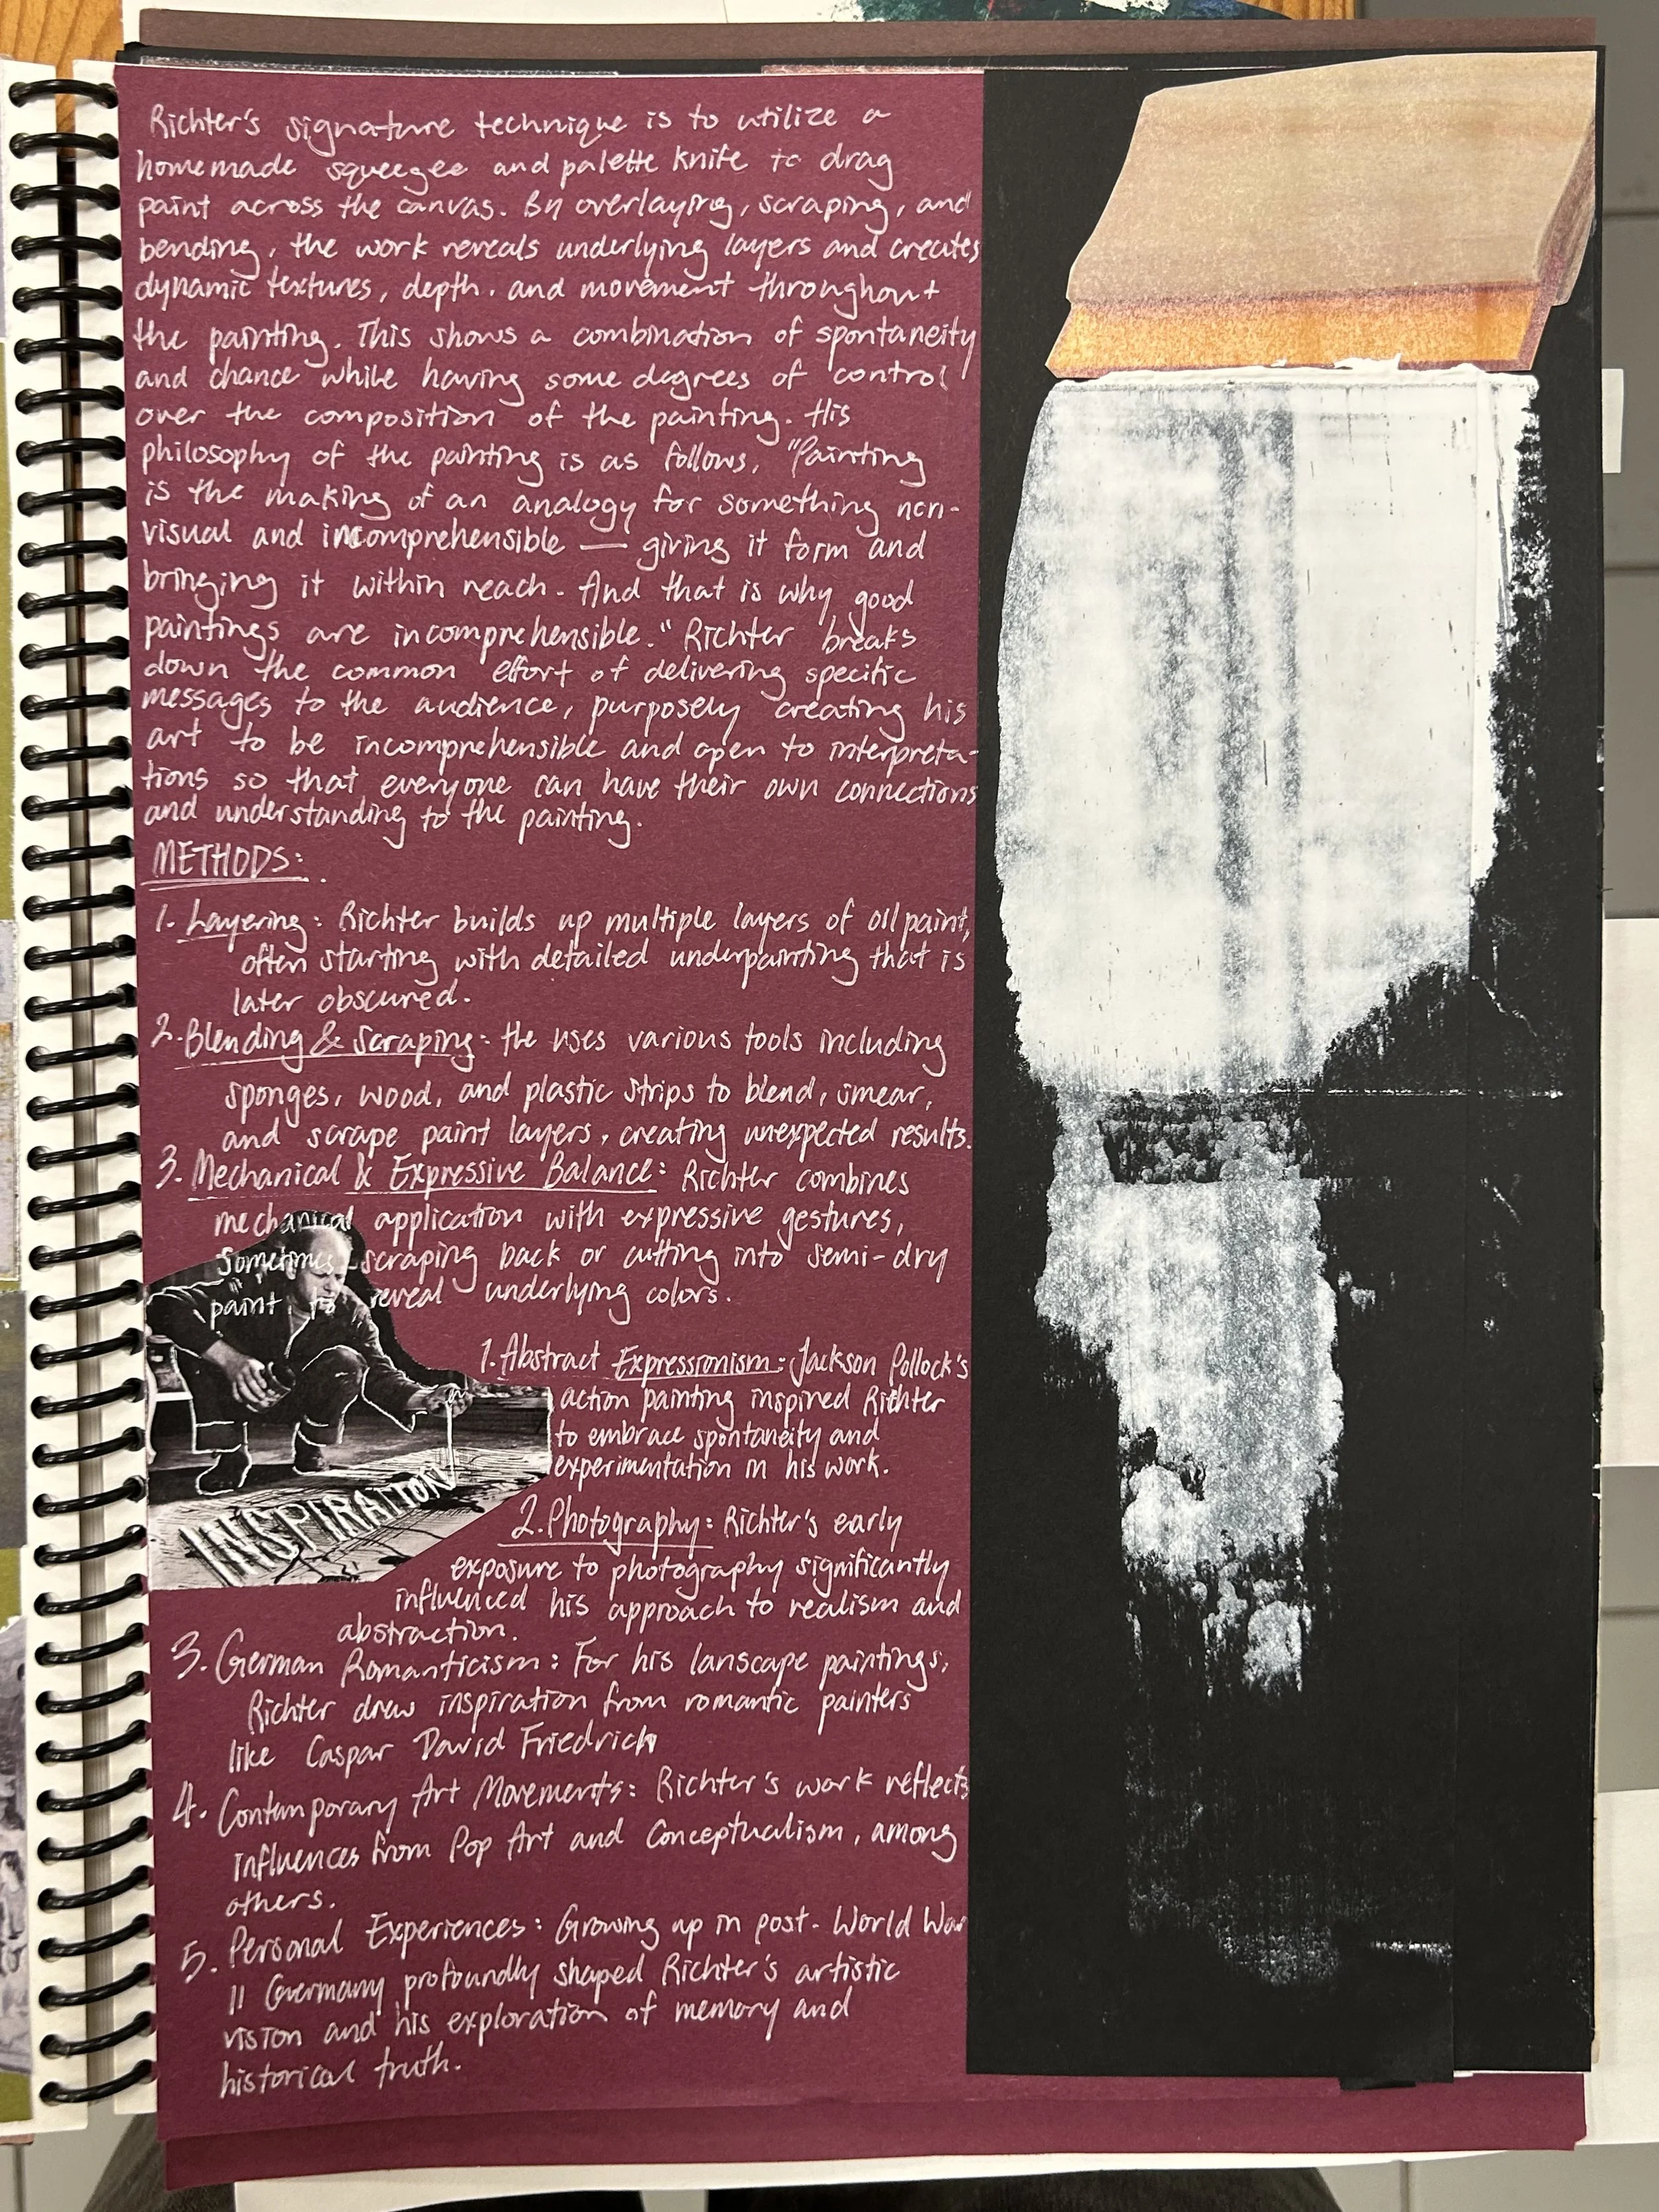 Richter's signature technique is to utilize a
homemade squeegee and palette knife to drag
paint across the canvas. By overlaying, scraping, and
bending, the work reveals underlying layers and creates
dynamic textures, depth. and movement throughout
the painting. This shows a combination of spontaneity
and chance while having some degrees of control
over the composition of the painting. His
philosophy of the painting is as follows, "Painting
is the making of an analogy for something non-
visual and incomprehensible — giving it form and
bringing it within reach. And that is why good
paintings are incomprehensible." Richter breaks
down the common effort of delivering specific
messages to the audience, purposely creating his
art to be incomprehensible and open to interpreta-
tions so that everyone can have their own connections
and understanding to the painting.
METHODS:
1. Layering: Richter builds up multiple layers of oil paint,
often starting with detailed underpainting that is
later obscured.
2. Blending & Scraping: He uses various tools including
sponges, wood, and plastic strips to blend, smear,
and scrape paint layers, creating unexpected results.
3. Mechanical & Expressive Balance: Richter combines
mechanical application with expressive gestures,
sometimes scraping back or cutting into semi-dry
paint to reveal underlying colors.
INSPIRATION
1. Abstract Expressionism: Jackson Pollock's
action painting inspired Richter
to embrace spontaneity and
experimentation in his work.
2. Photography: Richter's early
exposure to photography significantly
influenced his approach to realism and
abstraction.
3. German Romanticism: For his lanscape paintings,
Richter drew inspiration from romantic painters
like Caspar David Friedrich
4. Contemporary Art Movements: Richter's work reflects
influences from Pop Art and Conceptualism, among
others.
5. Personal Experiences: Growing up in post-World War
II Germany profoundly shaped Richter's artistic
vision and his exploration of memory and
historical truth.